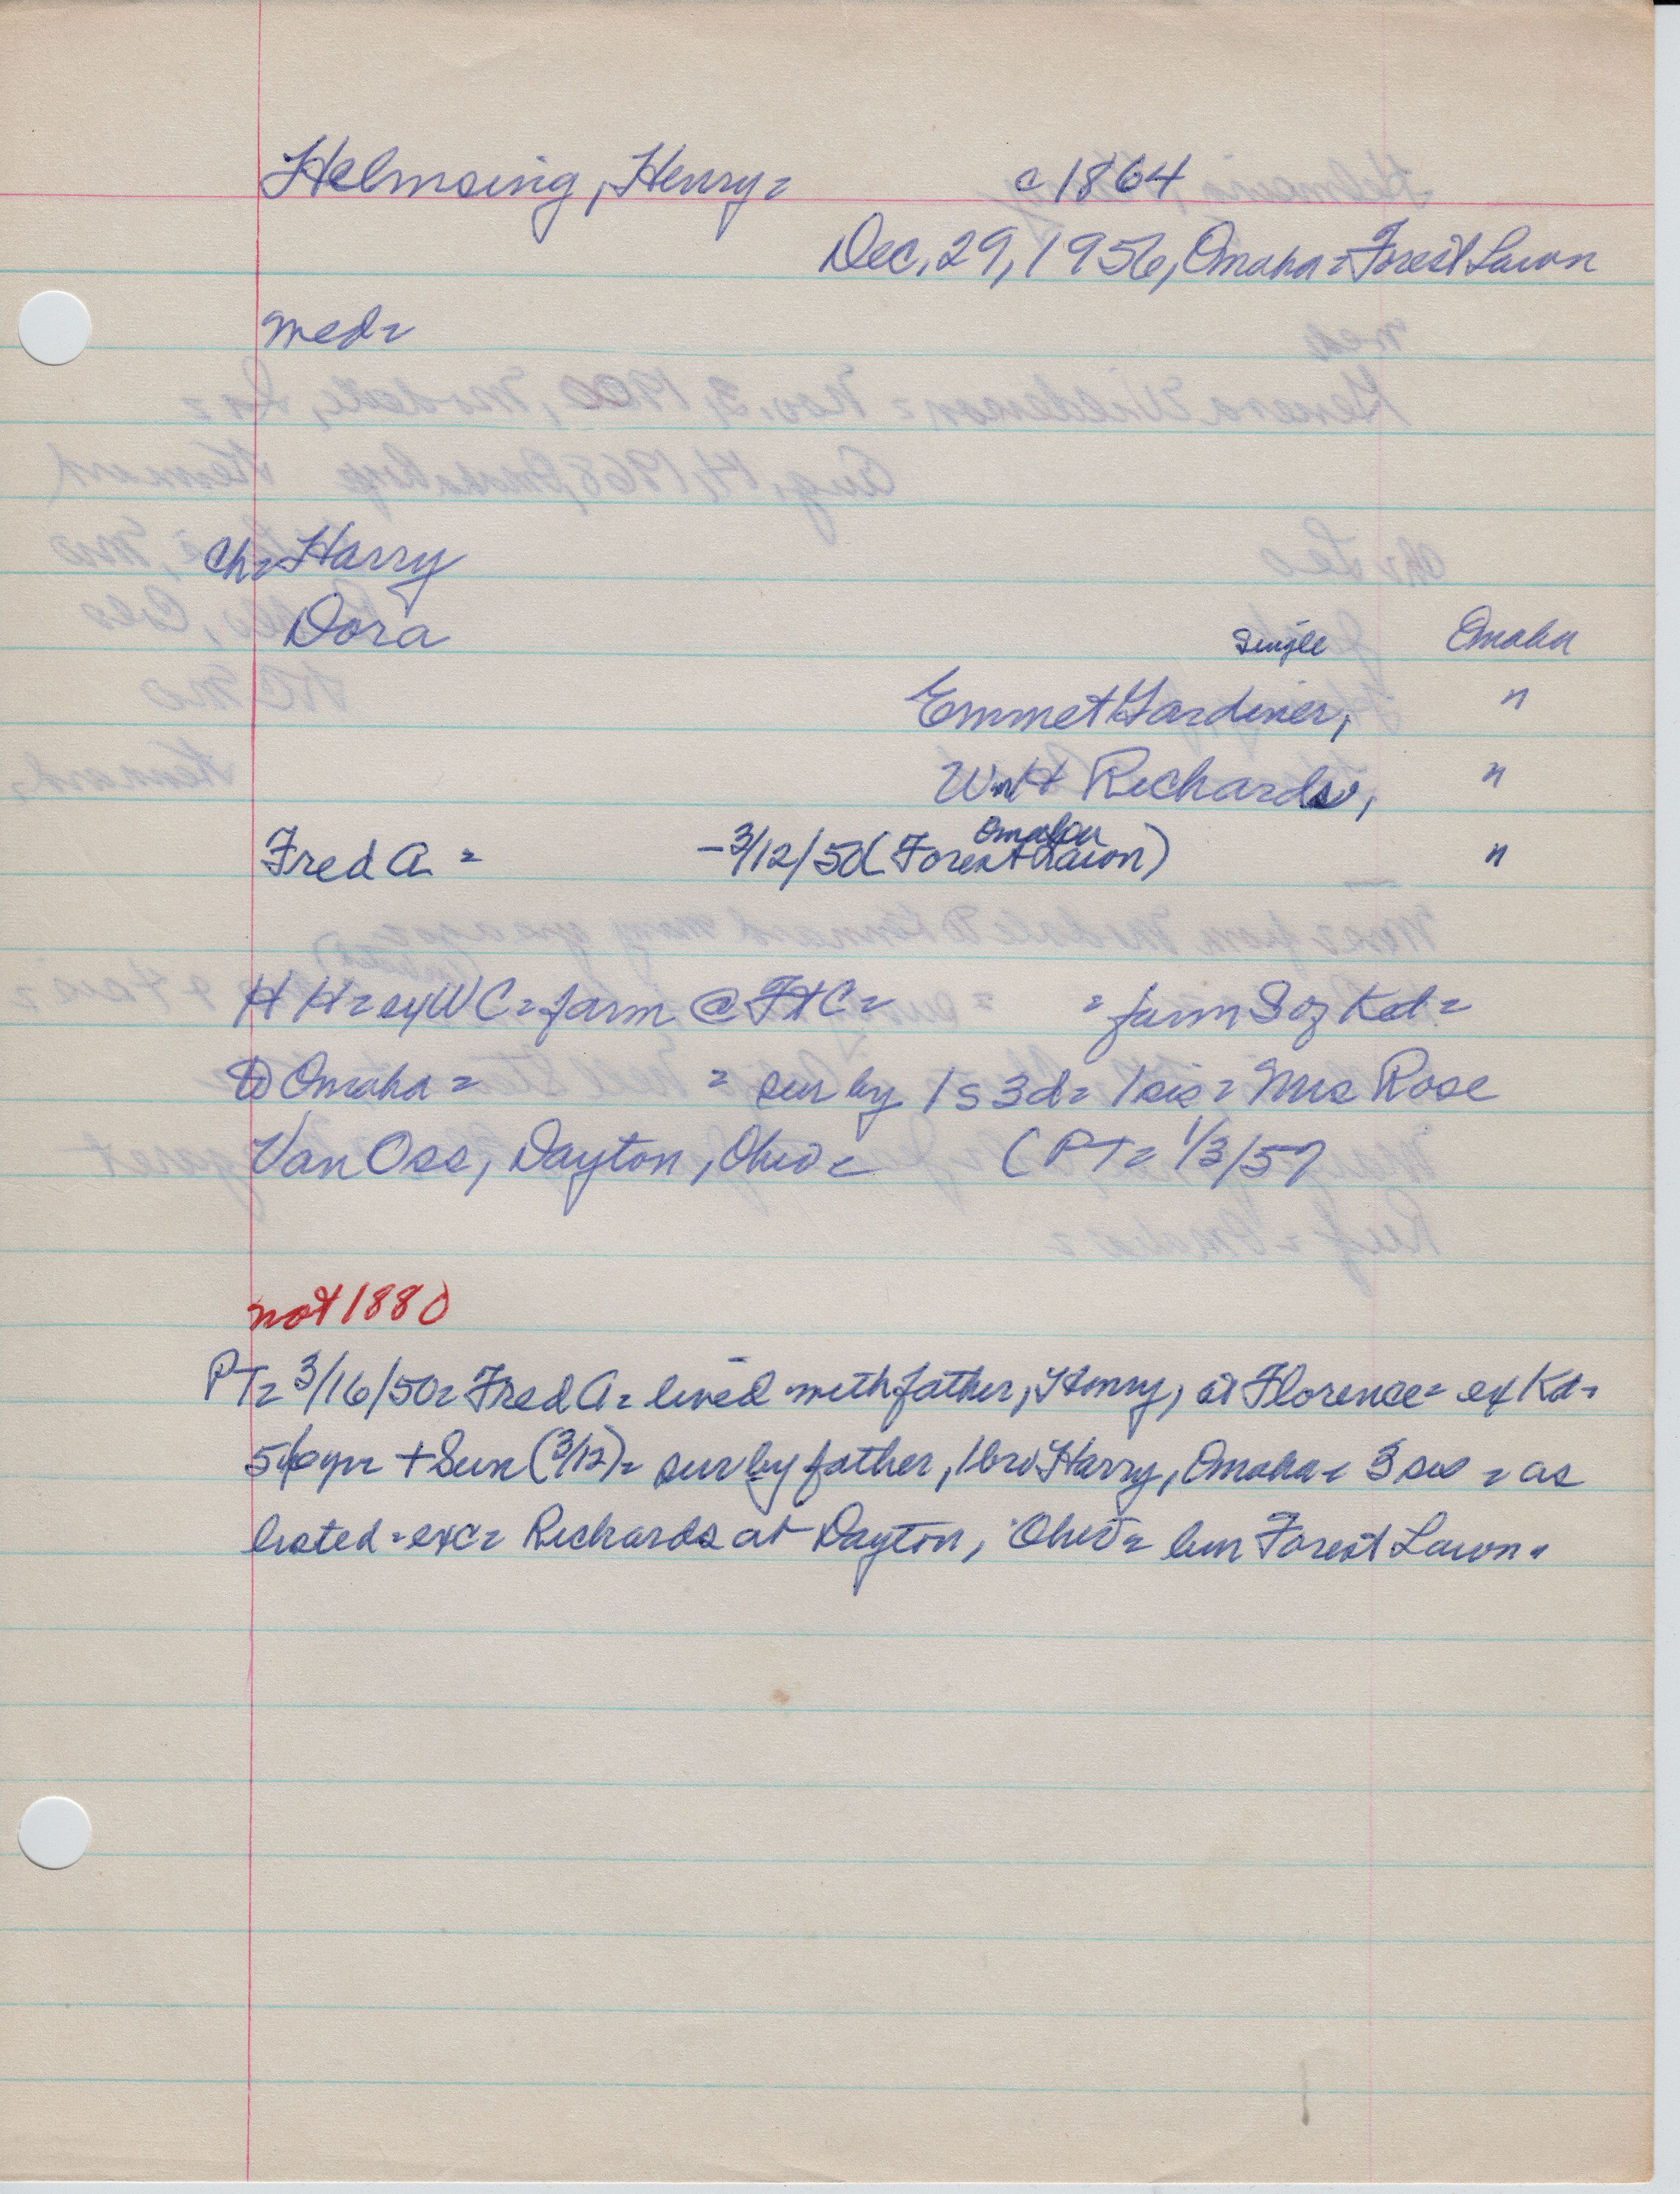 Helmsing, Henry= c1864
Dec. 29, 1956, Omaha = Forest Lawn
med=
Ch= Harry
Dora single Omaha
Emmet Gardiner, "
Wm H Richards, "
Omaha
Fred A = -3/12/50 (Forest Lawn) "
H H= ex WC= farm @ Ft C= = farm S of Kd=
to Omaha = = sur by 1 s 3 d= 1 sis= Mrs Rose
Van Oss, Dayton, Ohio= (PT= 1/3/57
not 1880
PT= 3/16/50= Fred A= lived with father, Henry, at Florence= ex Kd=
56 yr= + Sun (3/12)= sur by father, 1 bro Harry, Omaha= 3 sis = as
listed = exc= Richards at Dayton, Ohio= bur Forest Lawn=